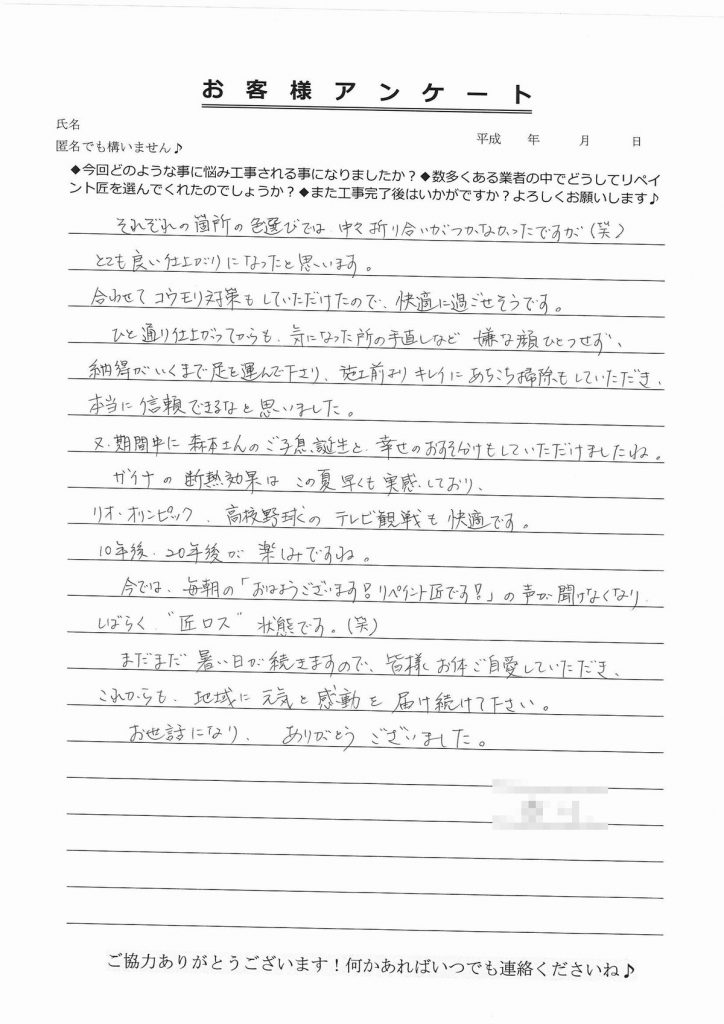 お客様アンケート
氏名
匿名でも構いません♪
平成 年 月 日
◆今回どのような事に悩み工事される事になりましたか？◆数多くある業者の中でどうしてリペイ
ント匠を選んでくれたのでしょうか？◆また工事完了後はいかがですか？よろしくお願いします♪
それぞれの箇所の色選びでは、中々折り合いがつかなかったですが(笑)
とても良い仕上がりになったと思います。
合わせてコウモリ対策もしていただけたので、快適に過ごせそうです。
ひと通り仕上がってからも、気になった所の手直しなど 嫌な顔ひとつせず、
納得がいくまで足を運んで下さり、施工前よりキレイにあちこち掃除もしていただき、
本当に信頼できるなと思いました。
又、期間中に森本さんのご子息誕生と、幸せのおすそ分けもしていただけましたね。
ガイナの断熱効果は この夏早くも実感しており、
リオ・オリンピック、高校野球のテレビ観戦も快適です。
10年後、20年後が楽しみですね。
今では、毎朝の「おはようございます!リペイント匠です!」の声が聞けなくなり
しばらく“匠ロス”状態です。(笑)
まだまだ暑い日が続きますので、皆様お体ご自愛していただき、
これからも、地域に元気と感動を届け続けて下さい。
お世話になり、ありがとうございました。
ご協力ありがとうございます！何かあればいつでも連絡くださいね♪